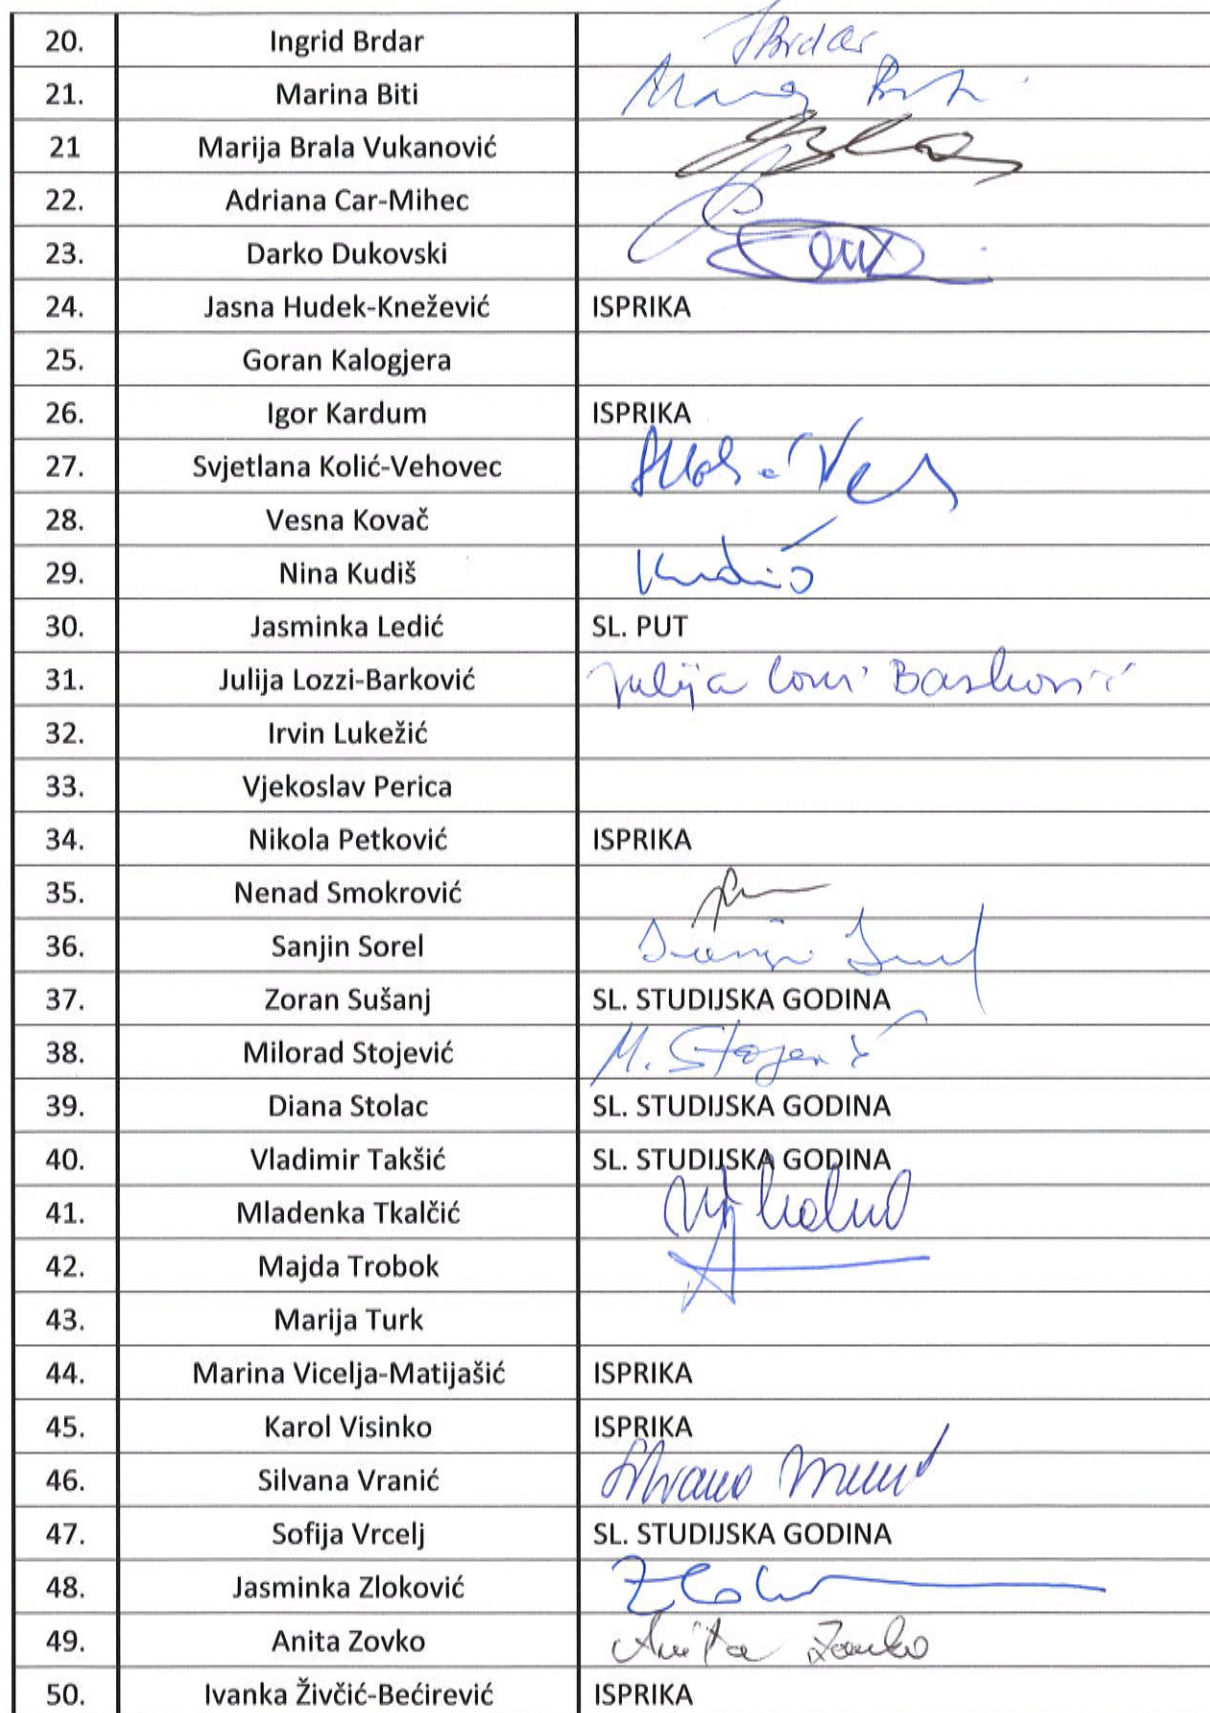 20. Ingrid Brdar IBrdar
21. Marina Biti
21 Marija Brala Vukanović
22. Adriana Car-Mihec
23. Darko Dukovski
24. Jasna Hudek-Knežević ISPRIKA
25. Goran Kalogjera
26. Igor Kardum ISPRIKA
27. Svjetlana Kolić-Vehovec
28. Vesna Kovač
29. Nina Kudiš Kudiš
30. Jasminka Ledić SL. PUT
31. Julija Lozzi-Barković Julija Lozzi Barković
32. Irvin Lukežić
33. Vjekoslav Perica
34. Nikola Petković ISPRIKA
35. Nenad Smokrović
36. Sanjin Sorel
37. Zoran Sušanj SL. STUDIJSKA GODINA
38. Milorad Stojević M. Stojević
39. Diana Stolac SL. STUDIJSKA GODINA
40. Vladimir Takšić SL. STUDIJSKA GODINA
41. Mladenka Tkalčić
42. Majda Trobok
43. Marija Turk
44. Marina Vicelja-Matijašić ISPRIKA
45. Karol Visinko ISPRIKA
46. Silvana Vranić Silvana Vranić
47. Sofija Vrcelj SL. STUDIJSKA GODINA
48. Jasminka Zloković
49. Anita Zovko Anita Zovko
50. Ivanka Živčić-Bećirević ISPRIKA